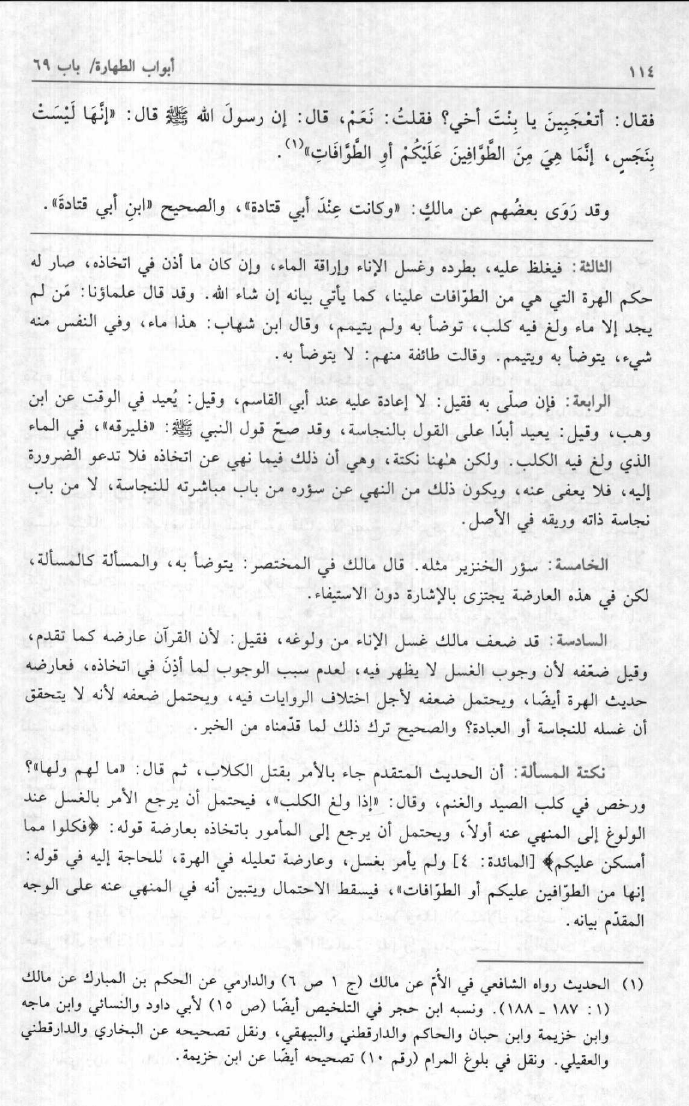 ١١٤
أبواب الطهارة/ باب ٦٩
فقال: أتعْجَبِينَ يا بِنْتَ أخي؟ فقلتُ: نَعَمْ، قال: إن رسولَ الله ﷺ قال: «إنَّهَا لَيْسَتْ
بِنَجَسٍ، إنَّمَا هِيَ مِنَ الطَّوَّافِينَ عَلَيْكُمْ أوِ الطَّوَّافَاتِ»(١).
وقد رَوَى بعضُهم عن مالكٍ: «وكانت عِنْدَ أبي قتادة»، والصحيح «ابنِ أبي قتادةَ».
الثالثة: فيغلظ عليه، بطرده وغسل الإناء وإراقة الماء، وإن كان ما أذن في اتخاذه، صار له
حكم الهرة التي هي من الطوّافات علينا، كما يأتي بيانه إن شاء الله. وقد قال علماؤنا: مَن لم
يجد إلا ماء ولغ فيه كلب، توضأ به ولم يتيمم، وقال ابن شهاب: هذا ماء، وفي النفس منه
شيء، يتوضأ به ويتيمم. وقالت طائفة منهم: لا يتوضأ به.
الرابعة: فإن صلّى به فقيل: لا إعادة عليه عند أبي القاسم، وقيل: يُعيد في الوقت عن ابن
وهب، وقيل: يعيد أبدًا على القول بالنجاسة، وقد صحّ قول النبي ﷺ: «فليرقه»، في الماء
الذي ولغ فيه الكلب. ولكن هٰهنا نكتة، وهي أن ذلك فيما نهي عن اتخاذه فلا تدعو الضرورة
إليه، فلا يعفى عنه، ويكون ذلك من النهي عن سؤره من باب مباشرته للنجاسة، لا من باب
نجاسة ذاته وريقه في الأصل.
الخامسة: سؤر الخنزير مثله. قال مالك في المختصر: يتوضأ به، والمسألة كالمسألة،
لكن في هذه العارضة يجتزى بالإشارة دون الاستيفاء.
السادسة: قد ضعف مالك غسل الإناء من ولوغه، فقيل: لأن القرآن عارضه كما تقدم،
وقيل ضعّفه لأن وجوب الغسل لا يظهر فيه، لعدم سبب الوجوب لما أذِنَ في اتخاذه، فعارضه
حديث الهرة أيضًا، ويحتمل ضعفه لأجل اختلاف الروايات فيه، ويحتمل ضعفه لأنه لا يتحقق
أن غسله للنجاسة أو العبادة؟ والصحيح ترك ذلك لما قدّمناه من الخبر.
نكتة المسألة: أن الحديث المتقدم جاء بالأمر بقتل الكلاب، ثم قال: «ما لهم ولها»؟
ورخص في كلب الصيد والغنم، وقال: «إذا ولغ الكلب»، فيحتمل أن يرجع الأمر بالغسل عند
الولوغ إلى المنهي عنه أولاً، ويحتمل أن يرجع إلى المأمور باتخاذه بعارضة قوله: ﴿فكلوا مما
أمسكن عليكم﴾ [المائدة: ٤] ولم يأمر بغسل، وعارضة تعليله في الهرة، للحاجة إليه في قوله:
إنها من الطوّافين عليكم أو الطوّافات»، فيسقط الاحتمال ويتبين أنه في المنهي عنه على الوجه
المقدّم بيانه.
(١) الحديث رواه الشافعي في الأُمّ عن مالك (ج ١ ص ٦) والدارمي عن الحكم بن المبارك عن مالك
(١: ١٨٧ ـ ١٨٨). ونسبه ابن حجر في التلخيص أيضًا (ص ١٥) لأبي داود والنسائي وابن ماجه
وابن خزيمة وابن حبان والحاكم والدارقطني والبيهقي، ونقل تصحيحه عن البخاري والدارقطني
والعقيلي. ونقل في بلوغ المرام (رقم ١٠) تصحيحه أيضًا عن ابن خزيمة.